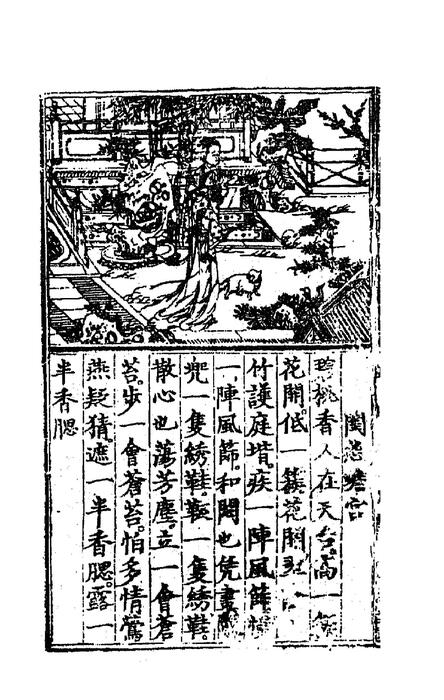 閨怨蟾宮
碧桃香人在天台。高一簇
花開。低一簇花開
竹護庭堦。疾一陣風篩慢
一陣風篩。和悶也凭畫
兜一隻綉鞋。靸一隻綉鞋。
散心也蕩芳塵。立一會蒼
苔。步一會蒼苔。怕多情鶯
燕疑猜。遮一半香腮。露一
半香腮